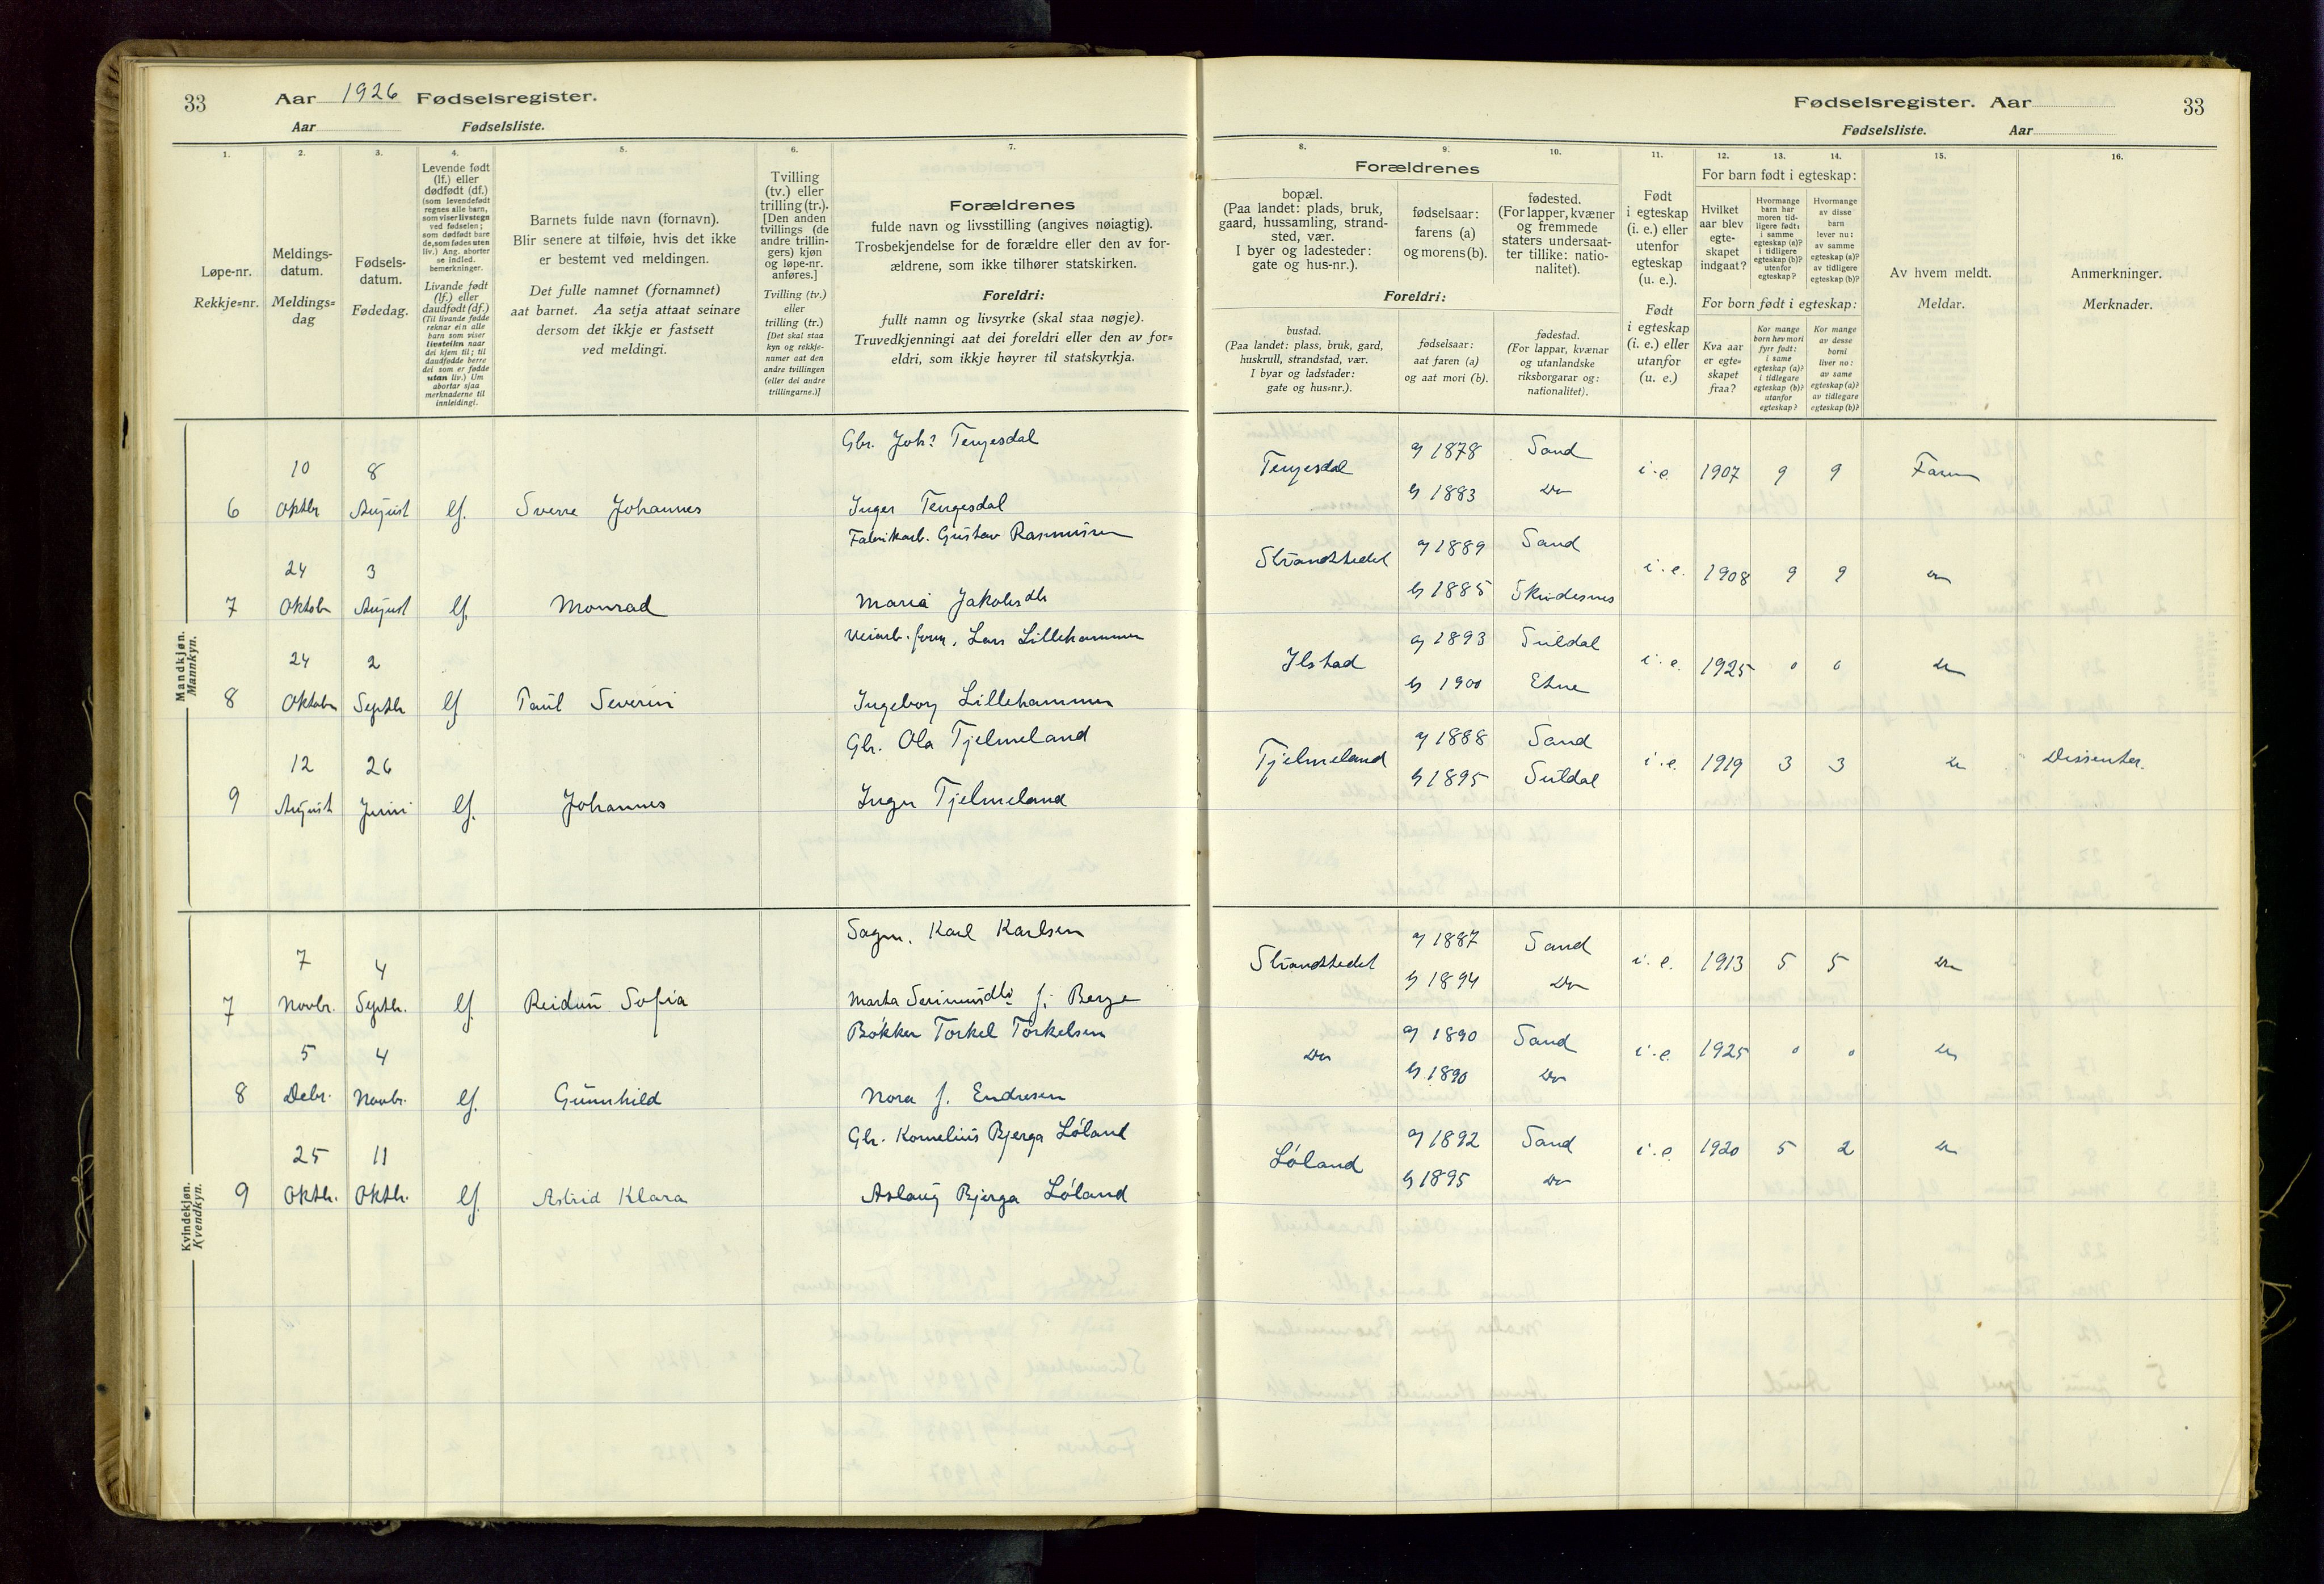 33 Aar 1926 Fødselsregister.
Aar Fødselsliste.
Fødselsregister. Aar 33
Fødselsliste. Aar
1. 2. 3. 4. 5. 6. 7. 8. 9. 10. 11. 12. 13. 14. 15. 16.
Løpe-nr.
Rekkje=nr.
Meldings-
datum.
Meldings=
dag
Fødsels-
datum.
Fødedag.
Levende født
(lf.) eller
dødfødt (df.)
(som levendefødt
regnes alle barn,
som viser livstegn
ved fødselen;
som dødfødt bare
de, som fødes uten
liv.) Ang. aborter
se indled.
bemerkninger.
Livande født
(lf.) eller
daudfødt (df.)
(Til livande fødde
reknar ein alle
barn som viser
livsteikn naar
dei kjem til; til
daudfødde berre
dei som er fødde
utan liv.) Um
abortar sjaa
merknaderne til
innleidingi.
Barnets fulde navn (fornavn).
Blir senere at tilføie, hvis det ikke
er bestemt ved meldingen.
Det fulle namnet (fornamnet)
aat barnet. Aa setja attaat seinare
dersom det ikkje er fastsett
ved meldingi.
Tvilling
(tv.) eller
trilling (tr.).
[Den anden
tvillings (de
andre trillin-
gers) kjøn
og løpe-nr.
anføres.]
Tvilling (tv.)
eller
trilling (tr.)
[Det skal staa
kyn og rekkje-
numer aat den
andre tvillingen
(eller dei andre
trillingarne.)]
Forældrenes
fulde navn og livsstilling (angives nøiagtig).
Trosbekjendelse for de forældre eller den av for-
ældrene, som ikke tilhører statskirken.
Foreldri:
fullt namn og livsyrke (skal staa nøgje).
Truvedkjenningi aat dei foreldri eller den av for=
eldri, som ikkje høyrer til statskyrkja.
Forældrenes
bopæl.
(Paa landet: plads, bruk,
gaard, hussamling, strand-
sted, vær.
I byer og ladesteder:
gate og hus-nr.).
fødselsaar:
farens (a)
og morens (b).
fødested.
(For lapper, kvæner
og fremmede
staters undersaat-
ter tillike: natio-
nalitet).
Foreldri:
bustad.
(Paa landet: plass, bruk, gard,
huskrull, strandstad, vær.
I byar og ladstader:
gate og hus=nr.).
fødselsaar:
aat faren (a)
og aat mori (b).
fødestad.
(For lappar, kvænar
og utanlandske
riksborgarar og:
nationalitet).
Født
i egteskap
(i. e.) eller
utenfor
egteskap
(u. e.).
Født
i egteskap
(i. e.) eller
utanfor
(u. e.)
For barn født i egteskap:
Hvilket
aar blev
egte-
skapet
indgaat?
Hvormange
barn har
moren tid-
ligere født:
i samme
egteskap (a)?
i tidligere
egteskap (b)?
utenfor
egteskap?
Hvormange
av disse
barn
lever nu:
av samme
egteskap (a)?
av tidligere
egteskap (b)?
For born født i egteskap:
Kva aar
er egte=
skapet
fraa?
Kor mange
born hev mori
fyrr født:
i same
egteskap (a)?
i tidlegare
egteskap (b)?
utanfor
egteskap?
Kor mange
av desse
borni
liver no:
av same
egteskap (a)?
av tidlegare
egteskap (b)?
Av hvem meldt.
Meldar.
Anmerkninger.
Merknader.
Mandkjøn.
Mannkyn.
Gbr. Johs Tengesdal
10 8 Tengesdal a 1878 Sand i. e. 1907 9 9 Faren
6 Oktbr August lf. Sverre Johannes Inger Tengesdal b 1883 Do
Fabrikarb. Gustav Rasmussen
24 3 Strandstedet a 1889 Sand i. e. 1908 9 9 Do
7 Oktobr August lf. Monrad Maria Jakobsdtr b 1885 Skudesnes
Veiarb. form. Lars Lillehammer
24 2 Ilstad a 1893 Suldal i. e. 1925 0 0 Do
8 Oktobr Septbr lf Paul Severin Ingeborg Lillehammer b 1900 Etne
Gbr. Ola Tjelmeland
12 26 Tjelmeland a 1888 Sand i. e. 1919 3 3 Do Dissenter.
9 August Juni lf. Johannes Inger Tjelmeland b 1895 Suldal
Kvindekjøn.
Kvendkyn.
Sagm. Karl Karlsen
7 4 Strandstedet a 1887 Sand i. e. 1913 5 5 Do
7 Novbr. Septbr. lf. Reidun Sofia Marta f. Berge b 1894 Do
Bøkker Torkel Torkelsen
5 4 Do a 1890 Sand i. e. 1925 0 0 Do
8 Debr. Novbr. lf. Gunnhild Nora f. Endresen b 1890 Do
Gbr. Kornelius Bjerga Løland
25 11 Løland a 1892 Sand i. e. 1920 5 2 Do
9 Oktbr. Oktbr. lf. Astrid Klara Aslaug Bjerga Løland b 1895 Do